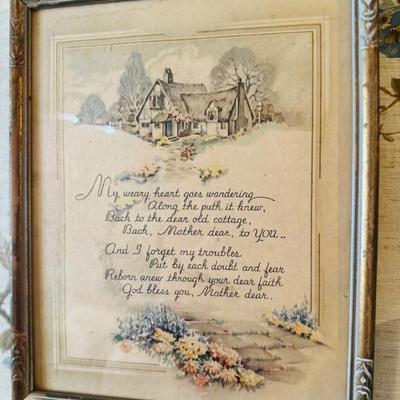 My weary heart goes wandering
Along the path it knew,
Back to the dear old cottage,
Back, Mother dear, to YOU..
And I forget my troubles
Put by each doubt and fear
Reborn anew through your dear faith
God bless you, Mother dear.